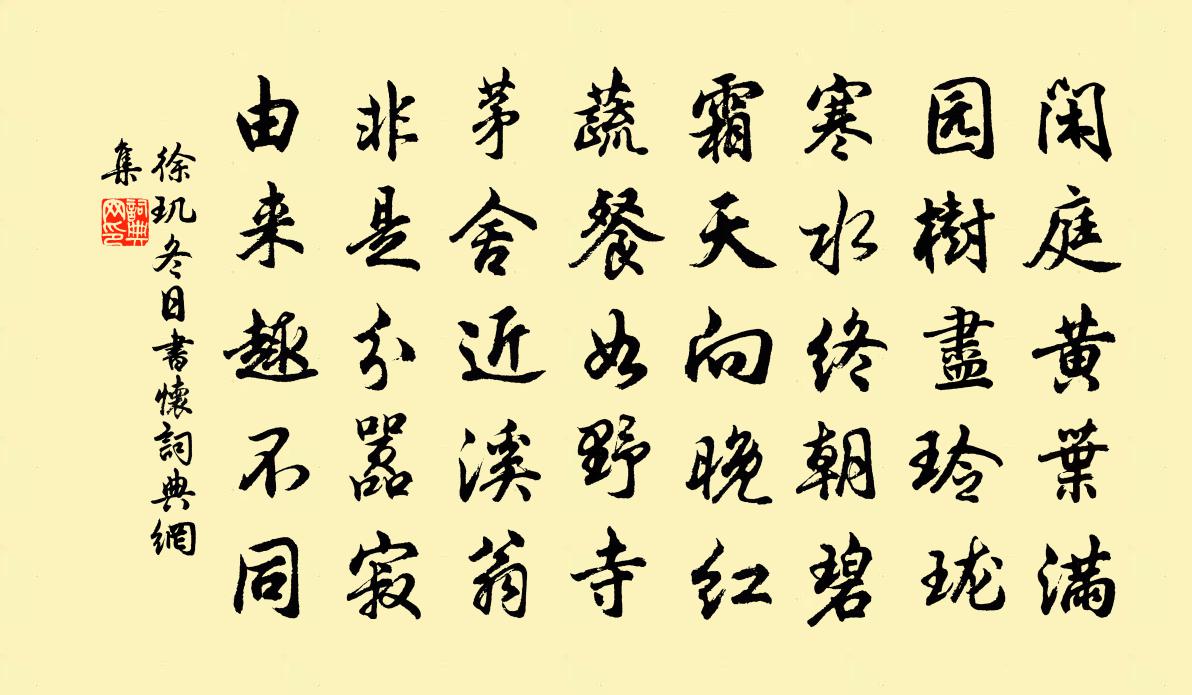 闲庭黄葉满
园樹盡玲珑
寒水终朝碧
霜天向晚红
蔬餐如野寺
茅舍近溪翁
非是分嚣寂
由来趣不同
徐玑冬日書懷詞典網
集
詞典网印